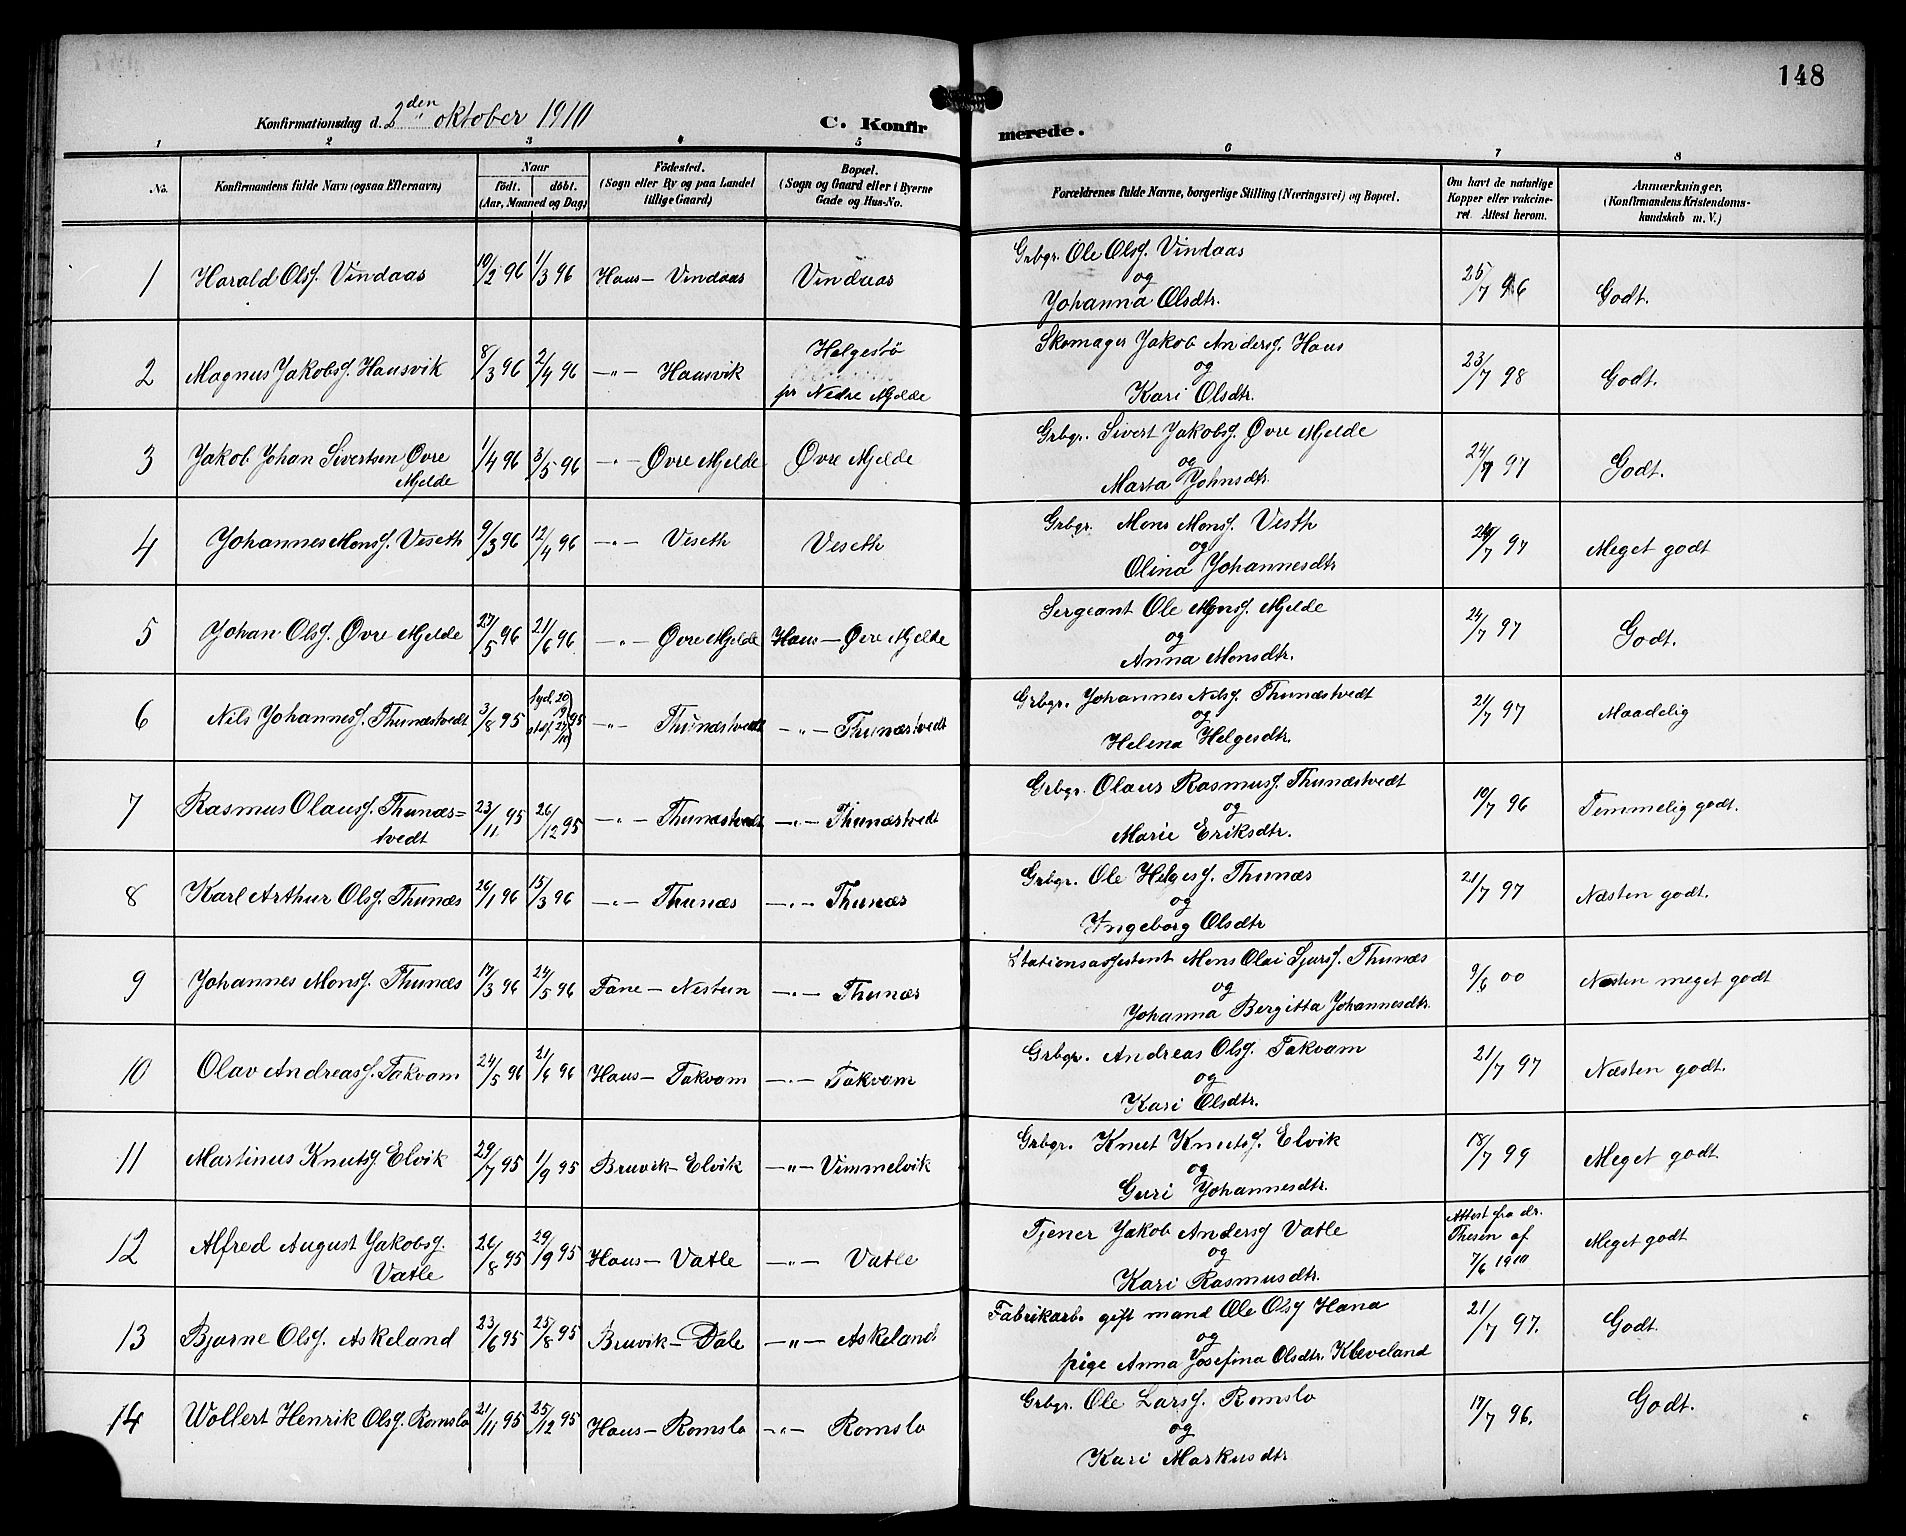 148
Konfirmationsdag d. 2den oktober 1910
C. Konfirmerede.
1 2 3 4 5 6 7 8
No. Konfirmandens fulde Navn (ogsaa Efternavn) Naar født. døbt. (Aar, Maaned og Dag) Fødested. (Sogn eller By og paa Landet tillige Gaard) Bopæl. (Sogn og Gaard eller i Byerne Gade og Hus-No. Forældrenes fulde Navne, borgerlige Stilling (Næringsvei) og Bopæl. Om havt de naturlige Kopper eller vakcineret. Attest herom. Anmærkninger. (Konfirmandens Kristendomskundskab m. V.)
1 Harald Olsf. Vindaas 10/2 96 1/3 96 Haus - Vindaas Vindaas Grbgr. Ole Olsf. Vindaas og Johanna Olsdtr. 25/7 96 Godt.
2 Magnus Jakobsf. Hausvik 8/3 96 2/4 96 -"- Hausvik Helgestø pr Nedre Mjelde Skomager Jakob Andersf. Haus og Kari Olsdtr. 23/7 98 Godt.
3 Jakob Johan Sivertsen Øvre Mjelde 1/4 96 3/5 96 -"- Øvre Mjelde Øvre Mjelde Grbgr. Sivert Jakobsf. Øvre Mjelde og Marta Johnsdtr. 24/7 97 Godt.
4 Johannes Monsf. Veseth 9/3 96 12/4 96 -"- Veseth Veseth Grbgr. Mons Monsf. Vesth og Olina Johannesdtr 24/7 97 Meget godt
5 Johan Olsf. Øvre Mjelde 27/5 96 21/6 96 -"- Øvre Mjelde Haus - Øvre Mjelde Sergeant Ole Monsf. Mjelde og Anna Monsdtr. 24/7 97 Godt.
6 Nils Johannesf. Thunæstvedt 3/8 95 -"- Thunæstvedt -"- Thunæstvedt Grbgr. Johannes Nilsf. Thunæstvedt og Helena Helgesdtr. 21/7 97 Maadelig
7 Rasmus Olausf. Thunæs=tvedt 23/11 95 26/12 95 -"- Thunæstvedt -"- Thunæstvedt Grbgr. Olaus Rasmusf. Thunæstvedt og Marie Eriksdtr. 10/7 96 Temmelig godt.
8 Karl Arthur Olsf. Thunæs 26/1 96 15/3 96 -"- Thunæs -"- Thunæs Grbgr. Ole Helgesf. Thunæs og Ingeborg Olsdtr 21/7 97 Næsten godt.
9 Johannes Monsf. Thunæs 17/3 96 24/5 96 Fane - Nestun -"- Thunæs Stationsassistent Mons Olai Sjursf. Thunæs og Johanna Bergitta Johannesdtr. 9/6 00 Næsten meget godt
10 Olav Andreasf. Takvam 24/5 96 21/6 96 Haus - Takvam -"- Takvam Grbgr. Andreas Olsf. Takvam og Kari Olsdtr. 21/7 97 Næsten godt.
11 Martinus Knutsf Elvik 29/7 95 1/9 95 Bruvik - Elvik -"- Vimmelvik Grbgr. Knut Knutsf. Elvik og Guri Johannesdtr. 18/7 99 Meget godt
12 Alfred August Jakobsf. Vatle 26/8 95 29/9 95 Haus - Vatle -"- Vatle Tjener Jakob Andersf Vatle og Kari Rasmusdtr. Attest fra dr. Thesen af 7/6 1910 Meget godt
13 Bjarne Olsf. Askeland 23/6 95 25/8 95 Bruvik - Dale -"- Askeland Fabrikarb. gift mand Ole Olsf Hana og pige Anna Josefina Olsdtr. Kleveland 21/7 97. Godt.
14 Wollert Henrik Olsf. Romslo 21/11 95 25/12 95 Haus - Romslo -"- Romslo Grbgr. Ole Larsf. Romslo og Kari Markusdtr 17/7 96. Godt.